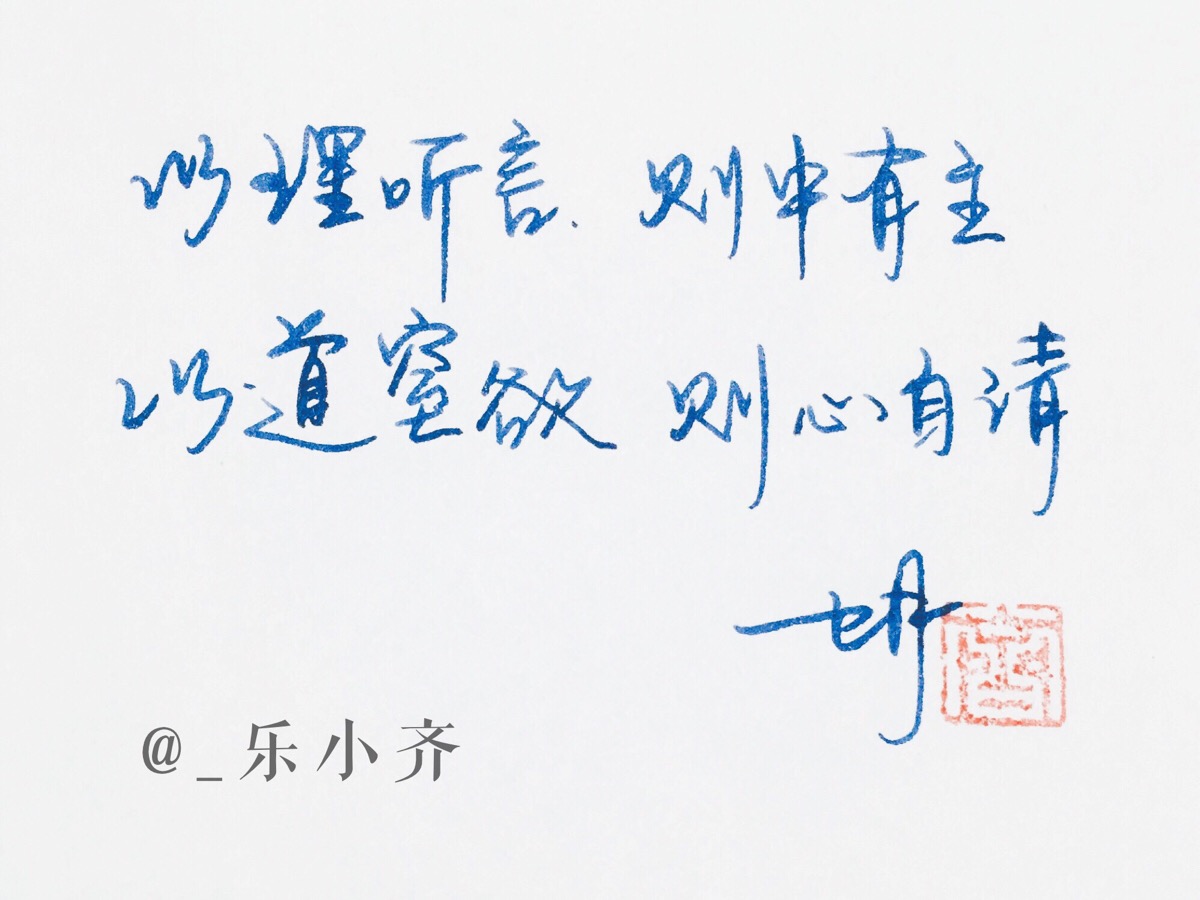 以理听言 则中有主
以道窒欲 则心自清
@_乐小齐